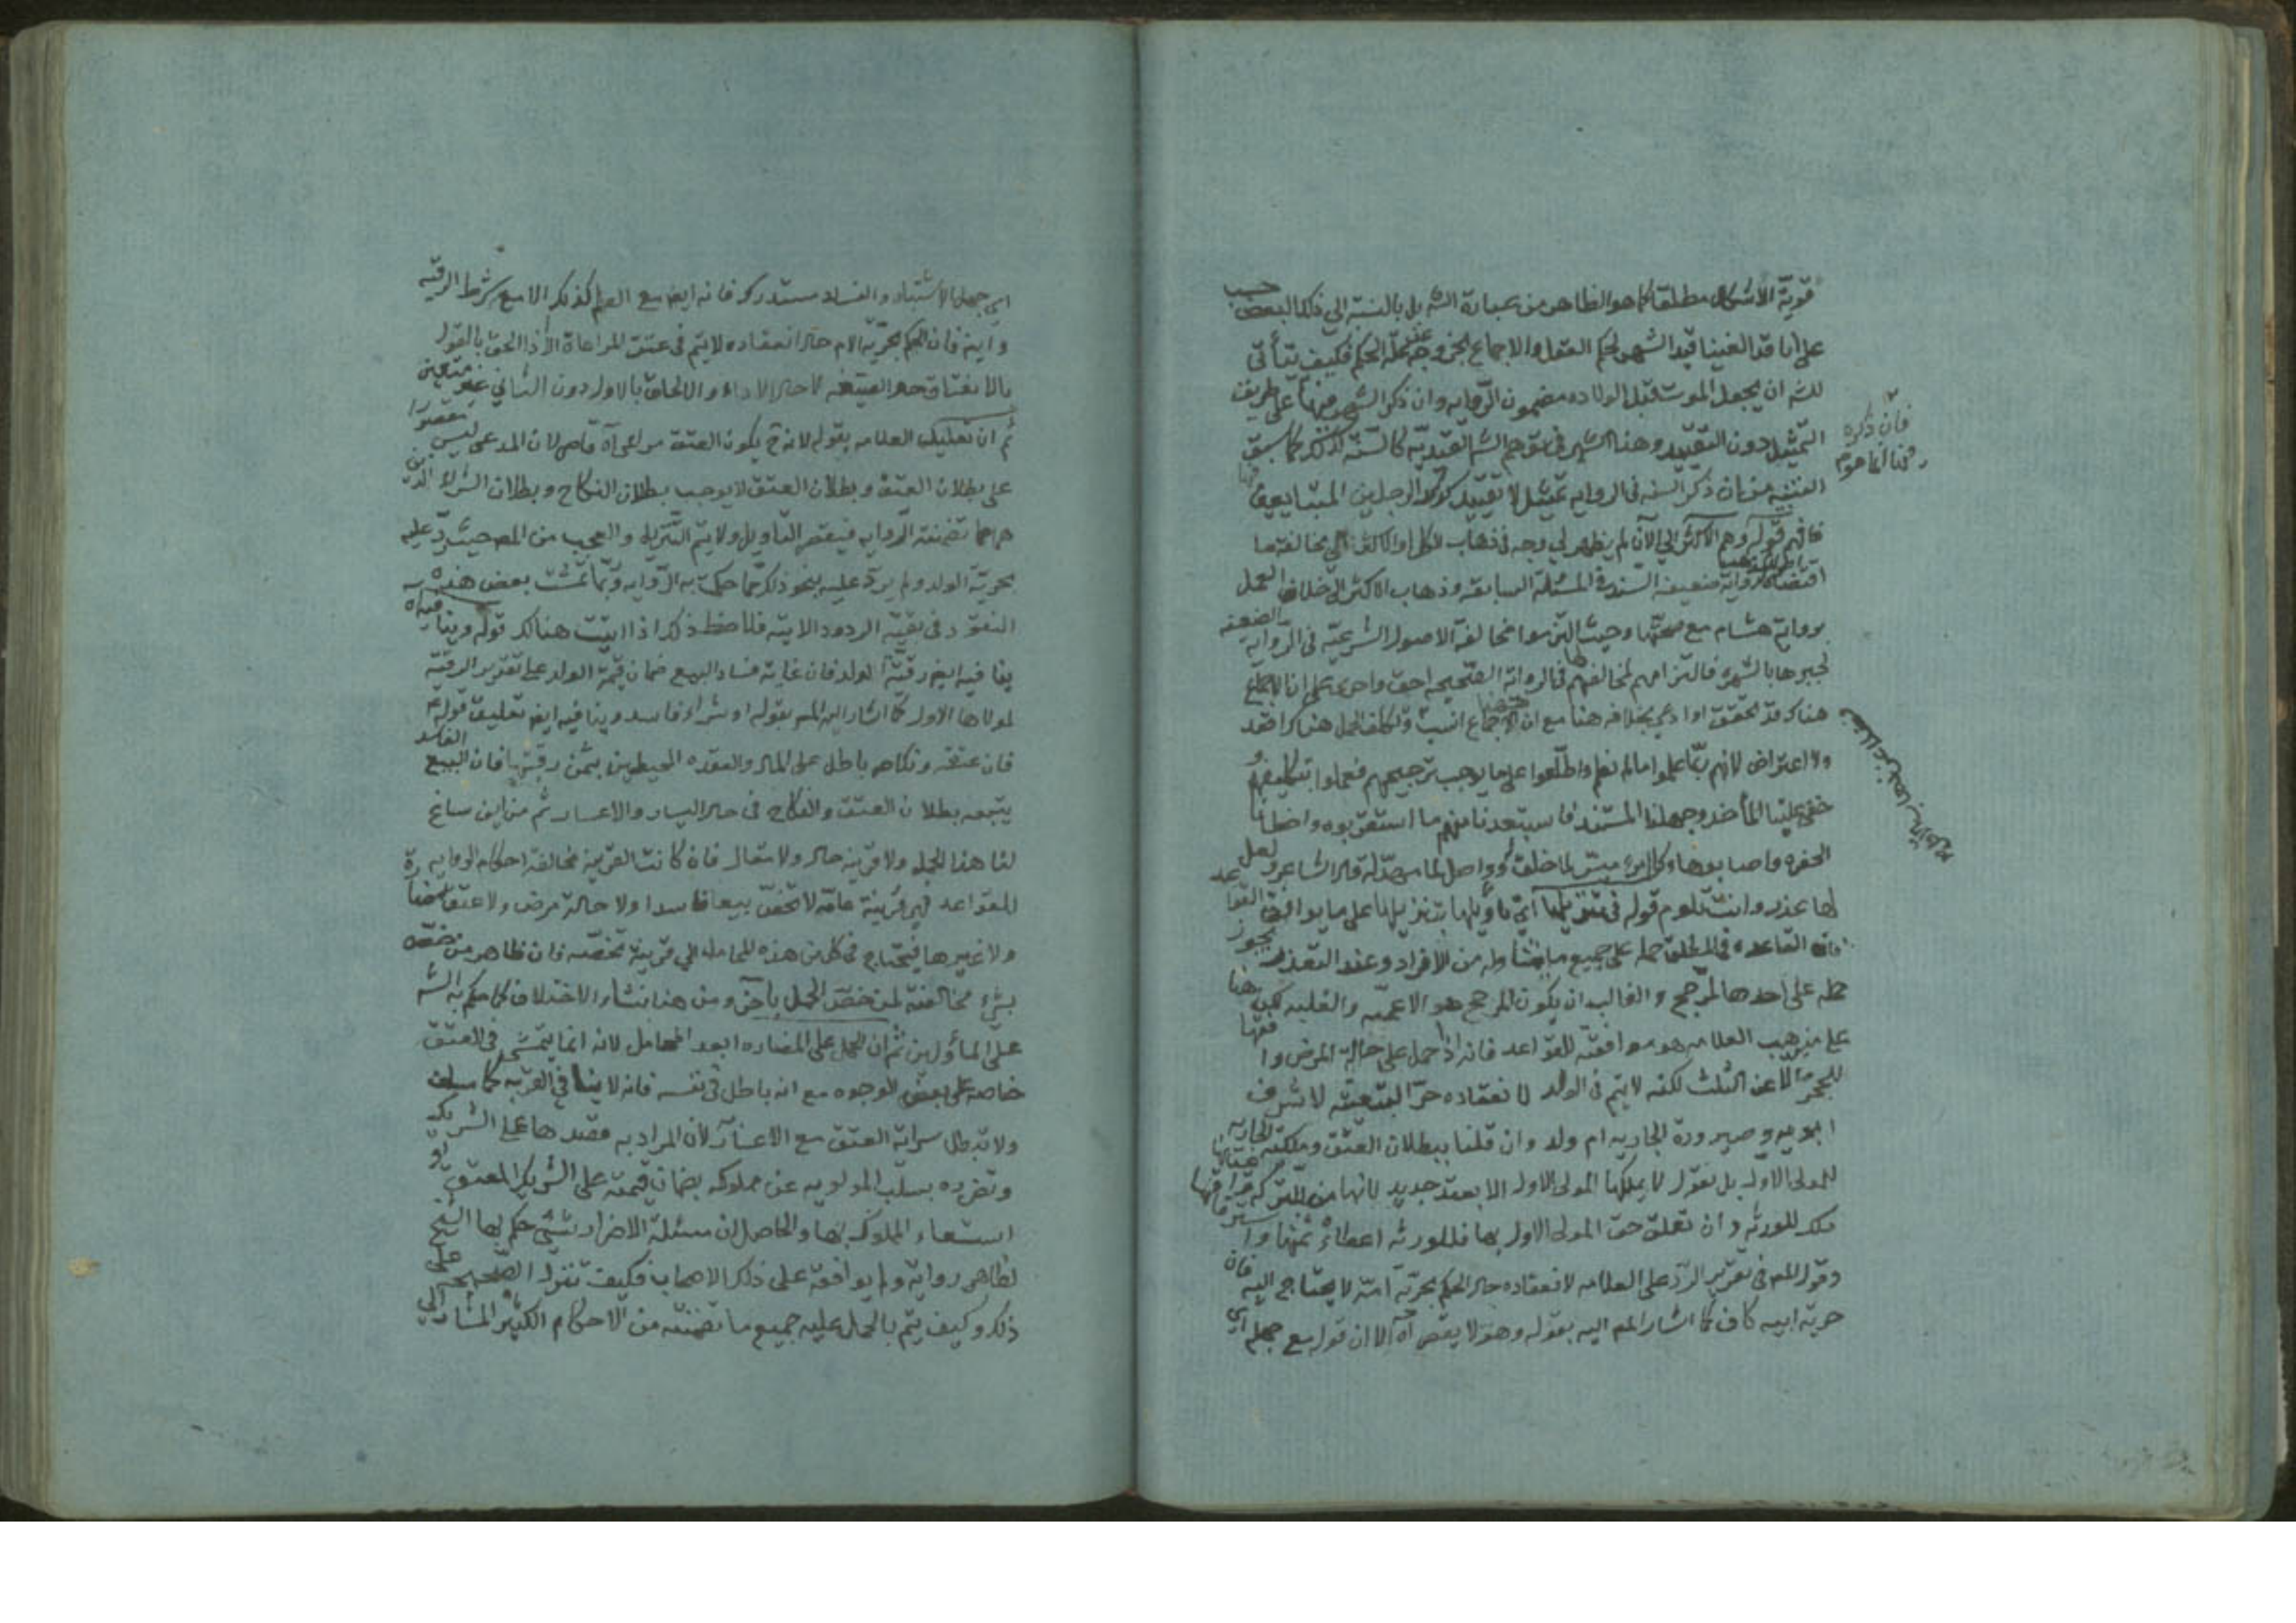 قوية الاشكال مطلقا كما هو الظاهر من عبارة الشه بل بالنسبة الى ذلك البعض
على انا قد الغينا قيد الشهر لحكم العقل والاجماع الحكم فكيف يتأتى
للشه ان يجعل الموت قبل الولاده مضمون الروايه وان ذكر الشهر فيها على طريق
التمثيل دون التقييد وهذا الشهر في الشه كالسنة كما سبق
فان ذكره
التنبيه من ان ذكر السنه في الروايه تمثيل لا تقييد الرجلين
فافهم قوله وهم الاكثر الى الآن لم يظهر لي وجه في ذهاب الكل او الاكثر الى مخالفة ما
رواية ضعيفه السند في المسئلة السابقه وذهاب الاكثر الى خلاف العمل
برواية هشام مع صحتها وحيث التزموا مخالفة الاصول الشرعيه في الروايه الضعيفه
لجبرها بالشهرة فالتزامهم لمخالفتها في الرواية الصحيحه احق واحرى على ان الاجماع
هناك قد تحقق او ادعي بخلافه هنا مع ان انسب وتكلف الحمل هناك اقعد
ولا اعتراض لانهم ربما علموا ما لم نعلم واطلعوا على ما يوجب ترجيحهم فعملوا بتكليفهم و
خفي علينا المأخذ وجهلنا المستند فاستبعدنا منهم ما استقربوه واخطانا
الحفره واصابوها وكل ميسر لما خلق له وواصل لما قال الشاعر لعل
لها عذر وانت تلوم قوله في تنزيلها اي تأويلها بتنزيلها على ما يوافق القواعد
فان القاعده في المطلق حمله على جميع ما من الافراد وعند التعذر يجوز
حمله على احدها المرجح والغالب ان يكون المرجح هو الاعميه والغلبه لكن هنا
على مذهب العلامه هو موافقته للقواعد فانه اذا حمل على حالة المرض وافقها
للحجر الا عن الثلث لكنه لا يتم في الولد لانعقاده حرا لتبعيته لاشرف
ابويه وصيرورة الجاريه ام ولد وان قلنا ببطلان العتق وملكية الجاريه
للمولى الاول بل نقول لا يملكها المولى الاول الا بعقد جديد لانها من التركه
ملك للورثه وان تعلق حق المولى الاول بها فللورثه اعطاء ثمنها و
وقول المم في تقرير الرد على العلامه لانعقاده حال الحكم بحرية امه لا يحتاج اليه فان
حرية ابيه كاف كما اشار المم اليه بقوله وهو لا يقصر آه الا ان قوله مع جهله اي
اي جهل الاشتباه والفساد مستدرك فانه ايض مع العلم كذلك الا مع شرط الرقيه
وايض فان الحكم بحرية الام حال انعقاده لا يتم في عتق المراعاة الا اذا الحق بالقول
بالانعتاق حال الصيغه لا حال الاداء والالحاق بالاول دون الثاني غير متعين
ثم ان تعليل العلامه بقوله لانه ح يكون العتق مراعى آه قاصر لان المدعى ليس مقصورا
على بطلان العتق وبطلان العتق لا يوجب بطلان النكاح وبطلان الشراء الذين
هما مما تضمنته الروايه فينقص التأويل ولا يتم التنزيل والعجب من المم حيث رد عليه
بحرية الولد ولم يرد عليه بنحو ذلك مما حكمت به الروايه وربما تمشت بعض هذه
النقود في بقية الردود الاتيه فلاحظ ذلك اذا اتيت هنالك قوله وينافيه آه
ينافيه ايض رقية الولد فان غاية فساد البيع ضمان قيمة الولد على تقدير الرقيه
لمولاها الاول كما اشار اليه المم بقوله او شراء فاسد وينافيه ايض تعليق قوله ع
فان عتقه ونكاحه باطل على المال والعقده المحيطين بثمن رقبتها فان البيع الفاسد
يتبعه بطلان العتق والنكاح في حال اليسار والاعسار ثم من اين ساغ
لنا هذا الحمل ولا قرينه حال ولا مقال فان كانت القرينه مخالفة احكام الروايه
للقواعد فهي قرينة عامه لا تخص بيعا فاسدا ولا حالة مرض ولا عتقا
ولا غيرها فيحتاج في كل من هذه المحامل الى قرينة تخصه فان ظاهر من خصه
بشيء مخالفته لمن خص الحمل بآخر ومن هذا نشاء الاختلاف كما حكم به الشه
على المأولين ثم ان الحمل على المضاره ابعد المحامل لانه انما يتمشى في العتق
خاصه على بعض الوجوه مع انه باطل في نفسه فانه لا ينافي القربه كما سلف
ولا تبطل سراية العتق مع الاعسار لان المراد به قصدها على الشريك
وتضرره بسلب المولويه عن مملوكه بضمان قيمته على الشريك المعتق او
استسعاء المملوك بها والحاصل ان مسئلة الاضرار شيء حكم بها الشيخ
لظاهر رواية ولم يوافقه على ذلك الاصحاب فكيف تنزل الصحيحه على
ذلك وكيف يتم بالحمل عليه جميع ما تضمنته من الاحكام الكثيره المشار الى